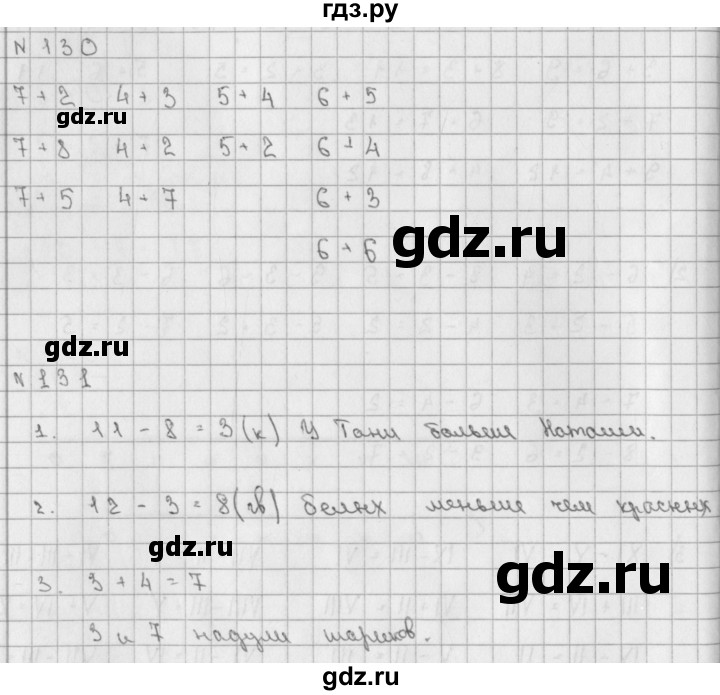 гдз.ру
N 130
7 + 2 4 + 3 5 + 4 6 + 5
gdz.ru
7 + 8 4 + 2 5 + 2 6 + 4
7 + 5 4 + 7 6 + 3
gdz.ru
6 + 6
gdz.ru
N 131
1. 11 - 8 = 3 (к) У Тани больше Наташи.
2. 12 - 3 = 8 (гв) белых меньше чем красных
gdz.ru
gdz.ru
3. 3 + 4 = 7
3 и 7 надули шариков.
gdz.ru